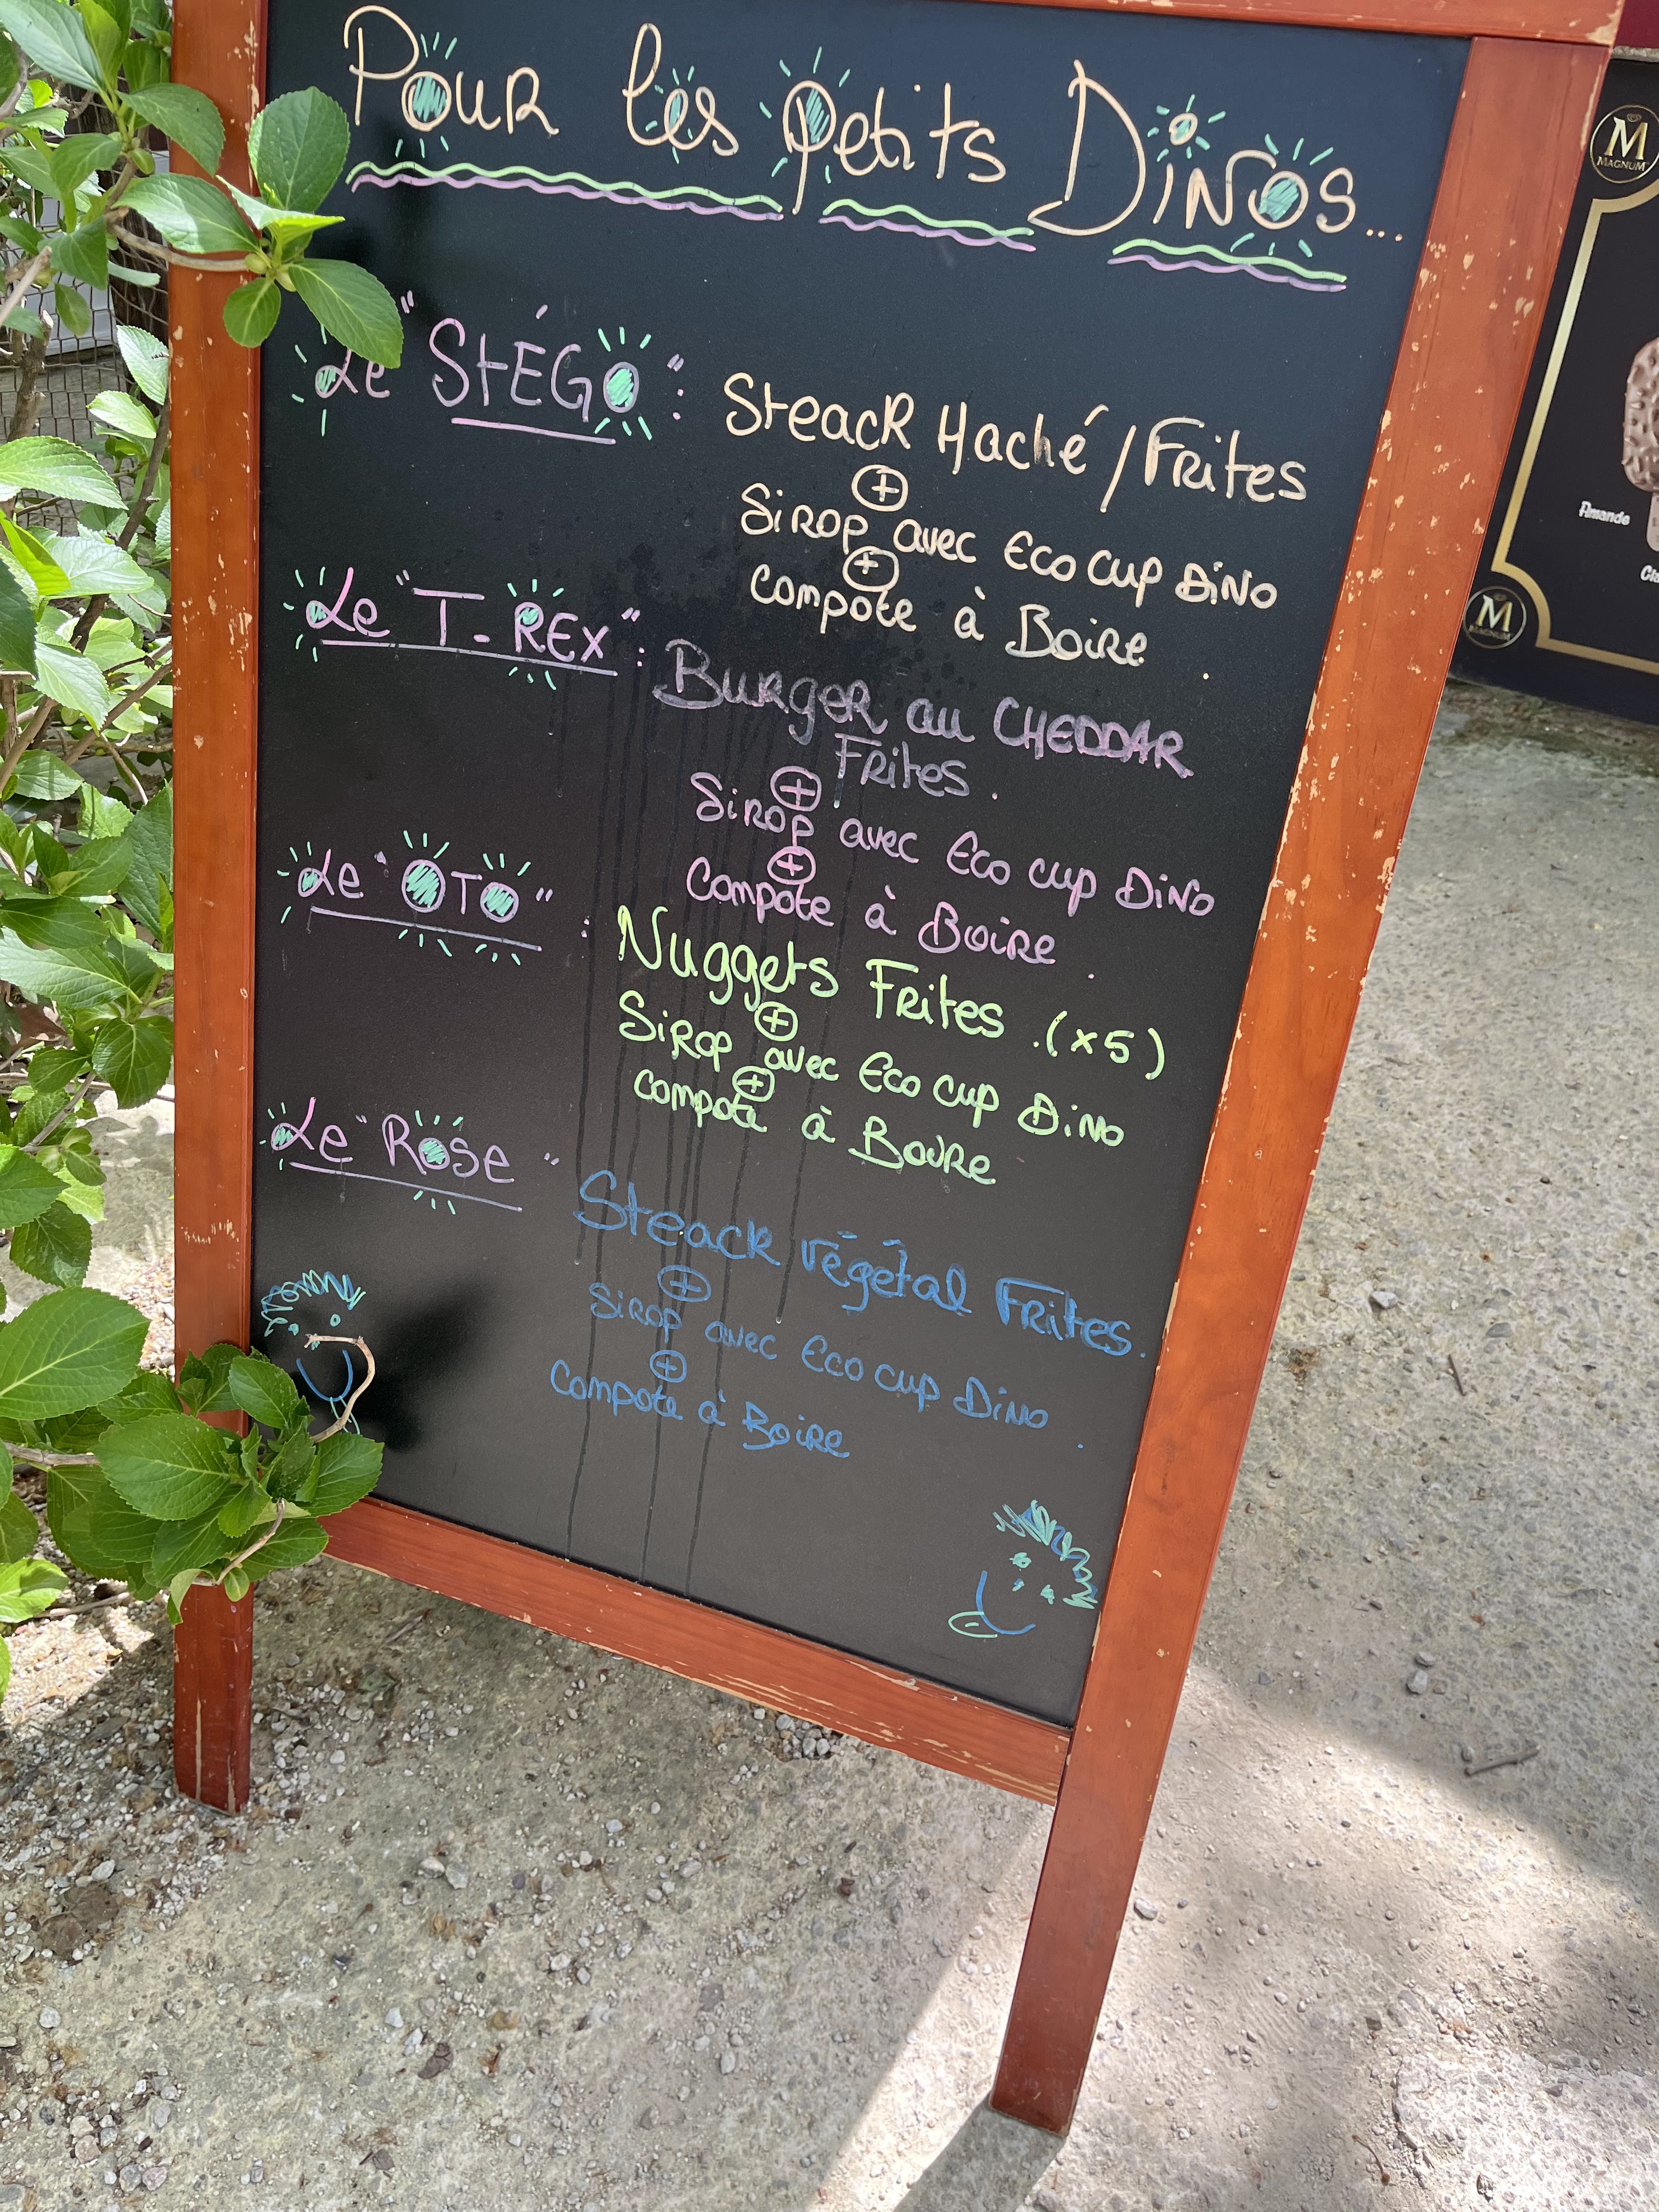 Pour les petits Dinos...
Le "StÉGO": Steack Haché/Frites
+
Sirop avec Eco cup Dino
+
compote à Boire.
Le "T-REX": Burger au CHEDDAR
Frites.
+
Sirop avec Eco cup Dino
+
Compote à Boire.
Le "OTO": Nuggets Frites.(x5)
+
Sirop avec Eco cup Dino
+
compote à Boire
Le "Rose" Steack végétal Frites.
+
Sirop avec Eco cup Dino.
+
Compote à Boire
M
MAGNUM
Amande
M
MAGNUM